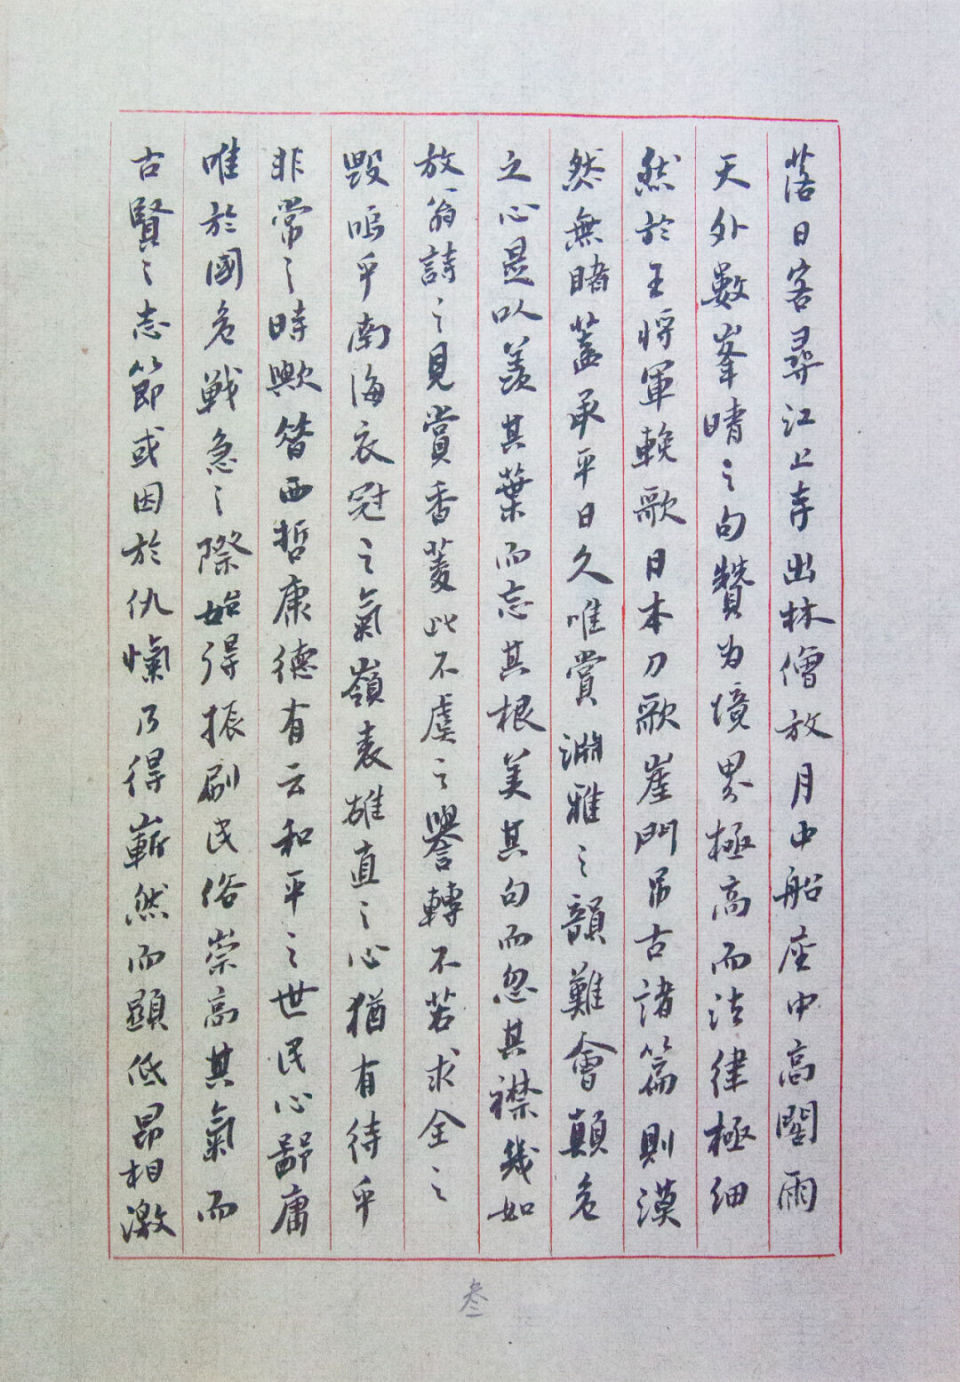 落日客尋江上寺出林僧放月中船座中高閣雨
天外數峯晴之句贊为境界極高而法律極細
然於王將軍輓歌日本刀歌崖門吊古諸篇則漠
然無睹蓋承平日久唯賞淵雅之韻難會顛危
之心是以羨其葉而忘其根美其句而忽其襟幾如
放翁詩之見賞香菱此不虞之譽轉不若求全之
毀嗚乎南海衣冠之氣嶺表雄直之心猶有待乎
非常之時歟昔西哲康德有云和平之世民心鄙庸
唯於國危戰急之際始得振刷民俗崇高其氣而
古賢之志節或因於仇愾乃得嶄然而顯低昂相激
叁